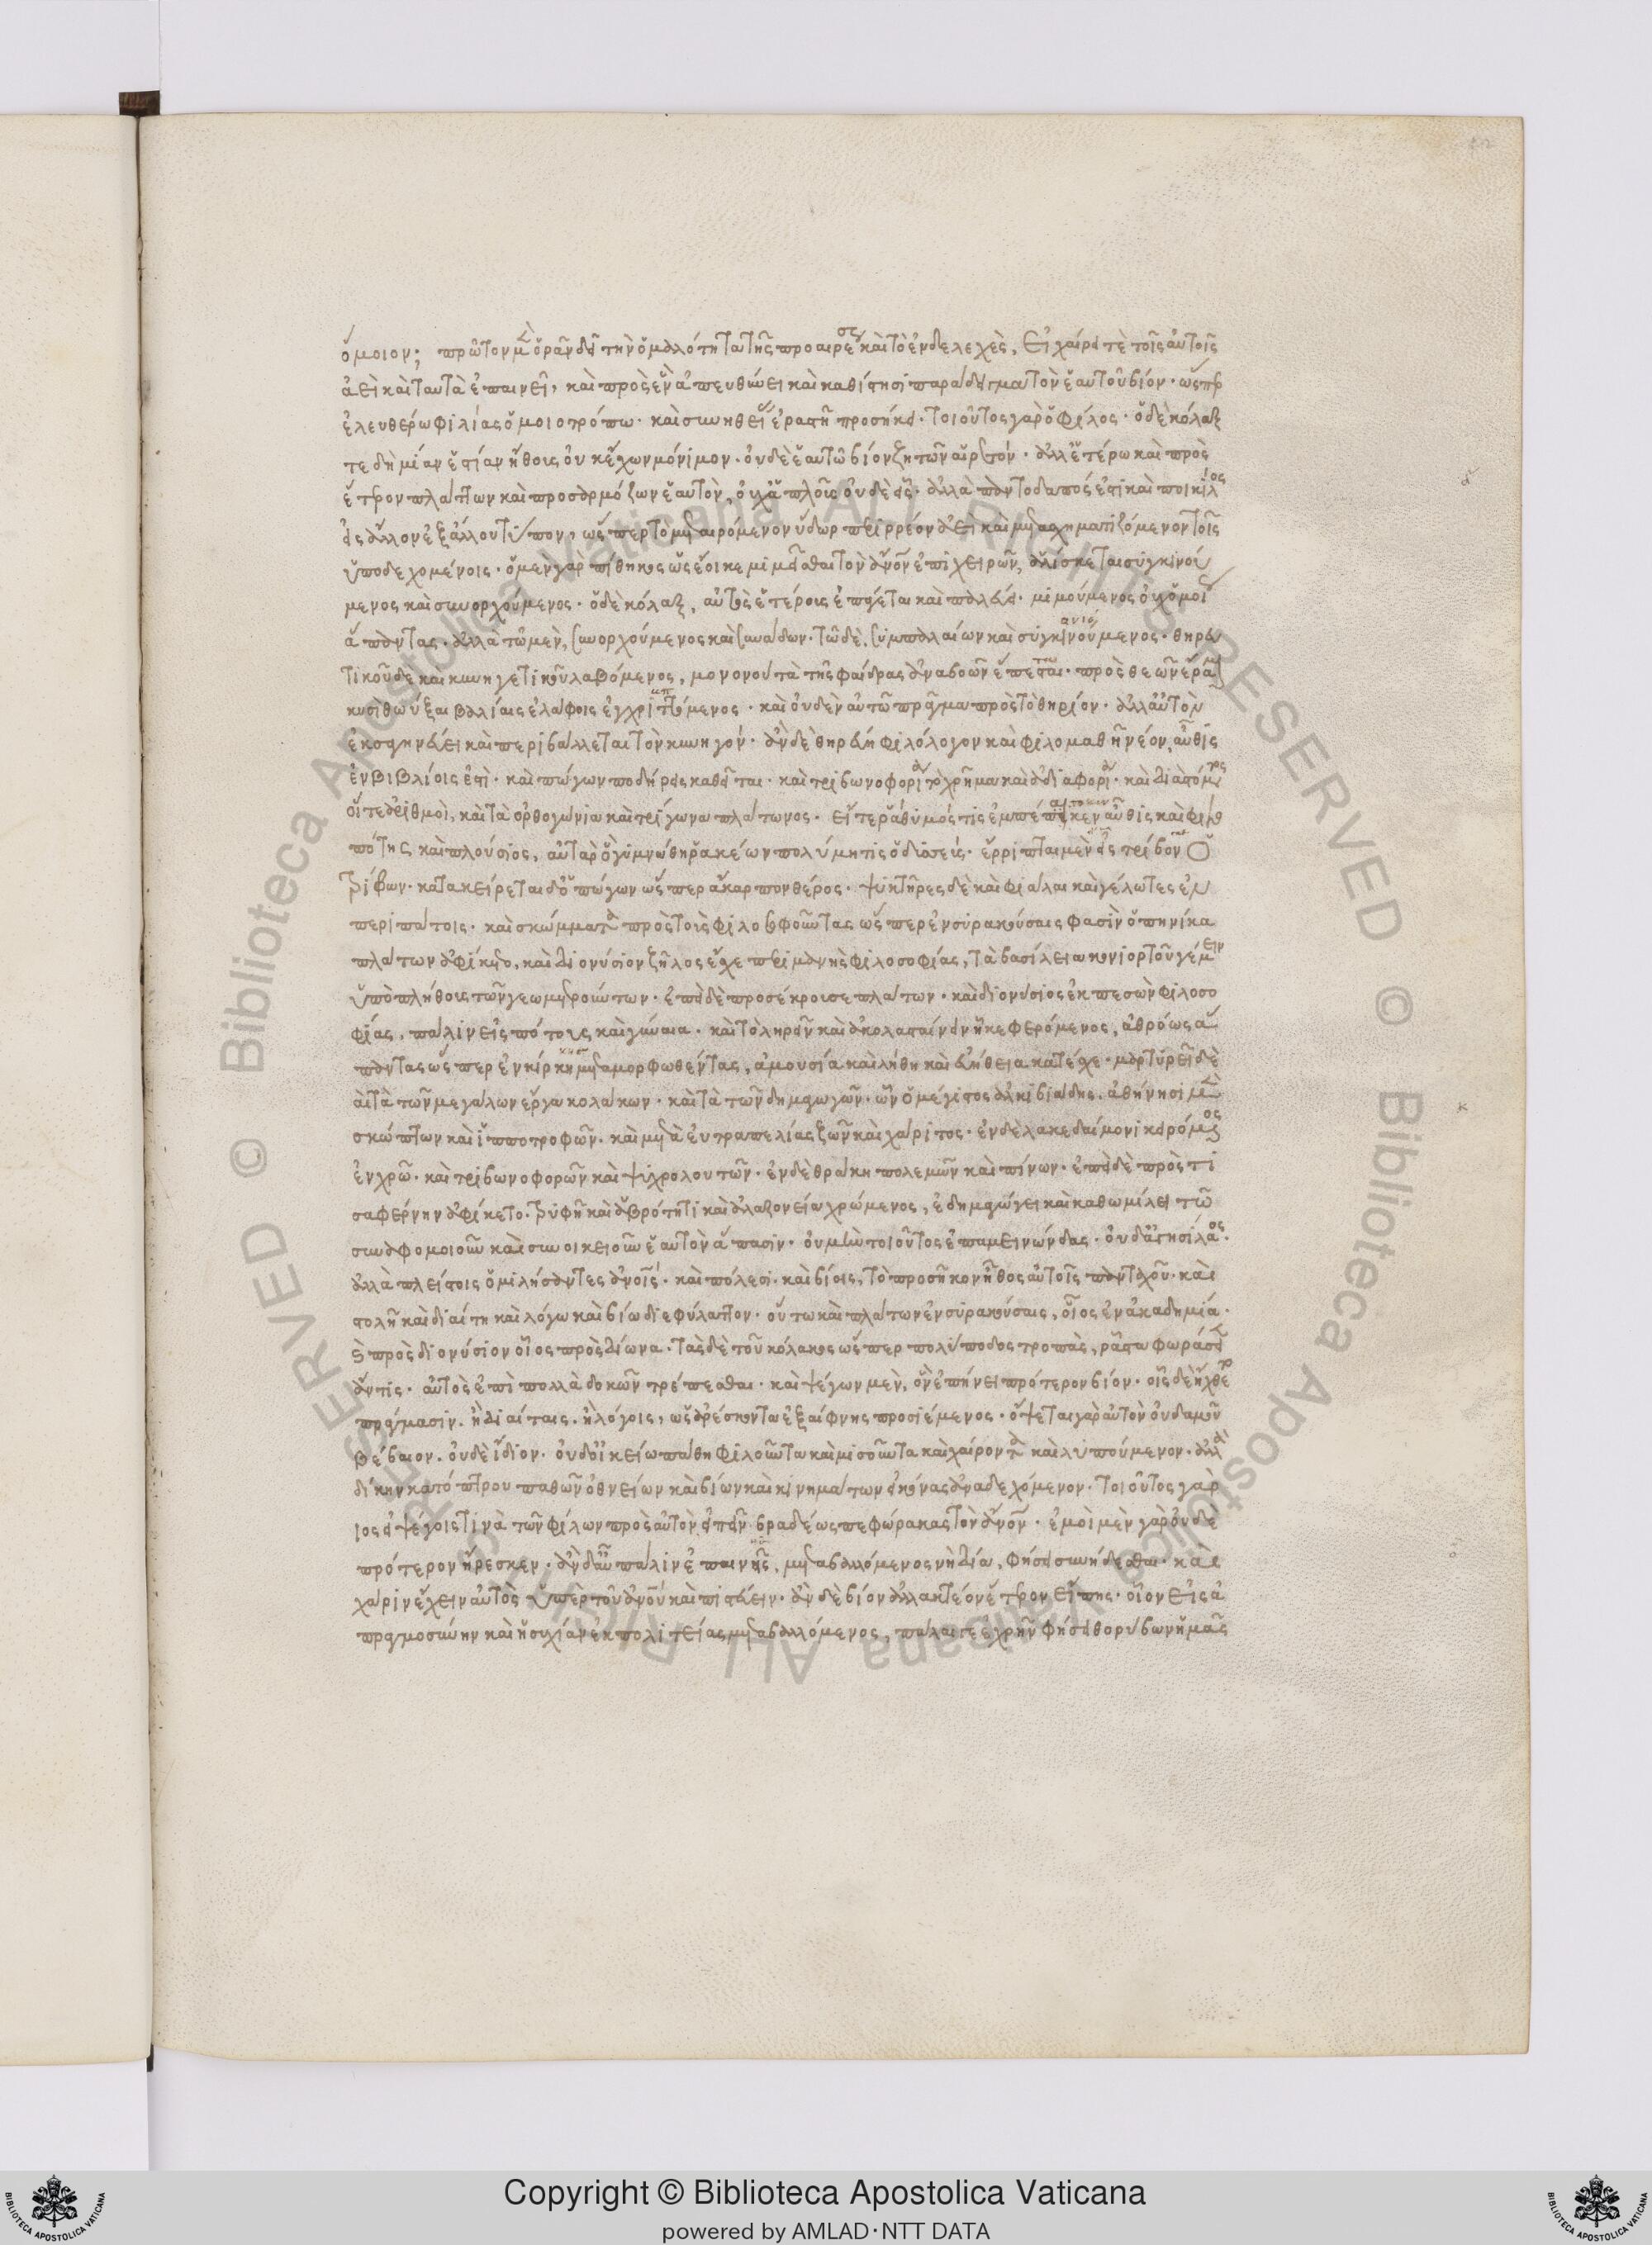 ὅμοιον; πρῶτον μὲν ὁρᾶν δεῖ τὴν ὁμαλότητα τῆς προαιρέσεως καὶ τὸ ἐνδελεχὲς, εἰ χαίρει τὲ τοῖς αὐτοῖς
ἀεὶ καὶ ταυτὰ ἐπαινεῖ, καὶ πρὸς ἓν ἀπευθύνει καὶ καθίστησι παράδειγμα τὸν ἑαυτοῦ βίον· ὥσπερ
ἐλευθέρω φιλίας ὁμοιοτρόπω· καὶ συνηθείας ἐραστῆ προσήκει· τοιοῦτος γὰρ ὁ φίλος· ὁ δὲ κόλαξ
τε δὴ μίαν ἑστίαν ἤθους οὐκ ἔχων μόνιμον· οὐδὲ ἑαυτῶ βίον ζητῶν αἱρετόν· ἀλλ' ἑτέρω καὶ πρὸς
ἕτερον πλάττων καὶ προσαρμόζων ἑαυτὸν, οὐχ ἁπλοῦς οὐδὲ εἷς· ἀλλὰ παντοδαπός ἐστι καὶ ποικίλος
εἰς ἄλλον ἐξ ἄλλου τύπον, ὥσπερ τὸ μεταιρόμενον ὕδωρ περιρρέον ἀεὶ καὶ μετασχηματιζόμενον τοῖς
ὑποδεχομένοις· ὁ μὲν γὰρ πίθηκος ὡς ἔοικε μιμεῖσθαι τὸν ἄνθρωπον ἐπιχειρῶν, ἁλίσκεται συγκινού
μενος καὶ συνορχούμενος· ὁ δὲ κόλαξ, αὐτὸς ἑτέρους ἐπάγεται καὶ παλεύει· μιμούμενος οὐχ ὁμοί
ως ἅπαντας· ἀλλὰ τῶ μὲν, συνορχούμενος καὶ συνάδων· τῶ δὲ, συμπαλαίων καὶ συγκινούμενος· θηρευ
τικοῦ δὲ καὶ κυνηγετικοῦ λαβόμενος, μονονοὺ τὰ τῆς φαίδρας ἀναβοῶν ἕπεται· πρὸς θεῶν ἔραμαι
κυσὶ θωύξαι βαλίαις ἐλάφοις ἐγχριπτόμενος· καὶ οὐδὲν αὐτῶ πρᾶγμα πρὸς τὸ θηρίον· ἀλλ' αὐτὸν
ἐκσαγηνεύει καὶ περιβάλλεται τὸν κυνηγόν· ἂν δὲ θηρεύη φιλόλογον καὶ φιλομαθῆ νέον, αὖθις
ἐν βιβλίοις ἐστὶ· καὶ πώγων ποδήρης καθεῖται· καὶ τριβωνοφορία τὸ χρῆμα καὶ ἀδιαφορία· καὶ διὰ στόματος
οἵ τε ἀριθμοὶ, καὶ τὰ ὀρθογώνια καὶ τρίγωνα πλάτωνος· εἶτε ῥάθυμός τις ἐμπέπτωκεν αὖθις καὶ φιλο
πότης καὶ πλούσιος, αὐτὰρ ὁ γυμνώθη ῥακέων πολύμητις ὀδυσσεύς· ἔρριπται μὲν ὁ
τρίβων· κατακείρεται δ' ὁ πώγων ὥσπερ ἄκαρπον θέρος· ψυκτῆρες δὲ καὶ φιάλαι καὶ γέλωτες ἐν
περιπάτοις· καὶ σκώμματα πρὸς τοὺς φιλοσοφοῦντας ὥσπερ ἐν συρακούσαις φασὶν ὁπηνίκα
πλάτων ἀφίκετο, καὶ διονύσιον ζῆλος ἔσχε περιμανὴς φιλοσοφίας, τὰ βασίλεια κονιορτοῦ γέμειν
ὑπὸ πλήθους τῶν γεωμετρούντων· ἐπεὶ δὲ προσέκρουσε πλάτων· καὶ διονύσιος ἐκπεσὼν φιλοσο
φίας, πάλιν εἰς πότους καὶ γύναια· καὶ τὸ ληρεῖν καὶ ἀκολασταίνειν ἧκε φερόμενος, ἀθρόως ἅ
παντας ὥσπερ ἐν κίρκης μεταμορφωθέντας, ἀμουσία καὶ λήθη καὶ εὐήθεια κατέσχε· μαρτυρεῖ δὲ
καὶ τὰ τῶν μεγάλων ἔργα κολάκων· καὶ τὰ τῶν δημαγωγῶν· ὧν ὁ μέγιστος ἀλκιβιάδης· ἀθήνησι μὲν
σκώπτων καὶ ἱπποτροφῶν· καὶ μετὰ εὐτραπελίας ζῶν καὶ χάριτος· ἐν δὲ λακεδαίμονι κειρόμενος
ἐν χρῶ· καὶ τριβωνοφορῶν καὶ ψυχρολουτῶν· ἐν δὲ θράκη πολεμῶν καὶ πίνων· ἐπεὶ δὲ πρὸς τι
σαφέρνην ἀφίκετο· τρυφῆ καὶ ἁβρότητι καὶ ἀλαζονεία χρώμενος, ἐδημαγώγει καὶ καθωμίλει τῶ
συναφομοιοῦν καὶ συνοικειοῦν ἑαυτὸν ἅπασιν· οὐ μὴν τοιοῦτος ἐπαμεινώνδας· οὐδ' ἀγησίλαος·
ἀλλὰ πλείστοις ὁμιλήσαντες ἀνθρώποις· καὶ πόλεσι· καὶ βίοις, τὸ προσῆκον ἦθος αὐτοῖς πανταχοῦ· καὶ
στολῆ καὶ διαίτη καὶ λόγω καὶ βίω διεφύλαττον· οὕτω καὶ πλάτων ἐν συρακούσαις, οἷος ἐν ἀκαδημία·
καὶ πρὸς διονύσιον οἷος πρὸς δίωνα· τὰς δὲ τοῦ κόλακος ὥσπερ πολύποδος τροπὰς, ῥᾶστα φωράσει
ἄν τις· αὐτὸς ἐπὶ πολλὰ δοκῶν τρέπεσθαι· καὶ ψέγων μὲν, ὃν ἐπήνει πρότερον βίον· οἷς δὲ ἤχθετο
πράγμασιν· ἢ διαίταις· ἢ λόγοις, ὡς ἀρέσκοντα ἐξαίφνης προσιέμενος· ὄψεται γὰρ αὐτὸν οὐδαμοῦ
βέβαιον· οὐδὲ ἴδιον· οὐδ' οἰκείω πάθη φιλοῦντα καὶ μισοῦντα καὶ χαίροντα καὶ λυπούμενον· ἀλλὰ
δίκην κατόπτρου παθῶν ὀθνείων καὶ βίων καὶ κινημάτων εἰκόνας ἀναδεχόμενον· τοιοῦτος γὰρ
οἷος εἰ ψέγοις τινὰ τῶν φίλων πρὸς αὐτὸν εἰπεῖν· βραδέως πεφώρακας τὸν ἄνθρωπον· ἐμοὶ μὲν γὰρ οὐδὲ
πρότερον ἤρεσκεν· ἂν δ' αὖ πάλιν ἐπαινῆς, μεταβαλλόμενος νὴ δία, φήσει συνήδεσθαι· καὶ
χάριν ἔχειν αὐτὸς ὑπὲρ τοῦ ἀνθρώπου καὶ πιστεύειν· ἂν δὲ βίον ἀλλακτέον ἕτερον εἴπης· οἷον εἰς ἀ
πραγμοσύνην καὶ ἡσυχίαν ἐκ πολιτείας μεταβαλλόμενος, πάλαι γε ἐχρῆν φήσει θορύβων ἡμᾶς